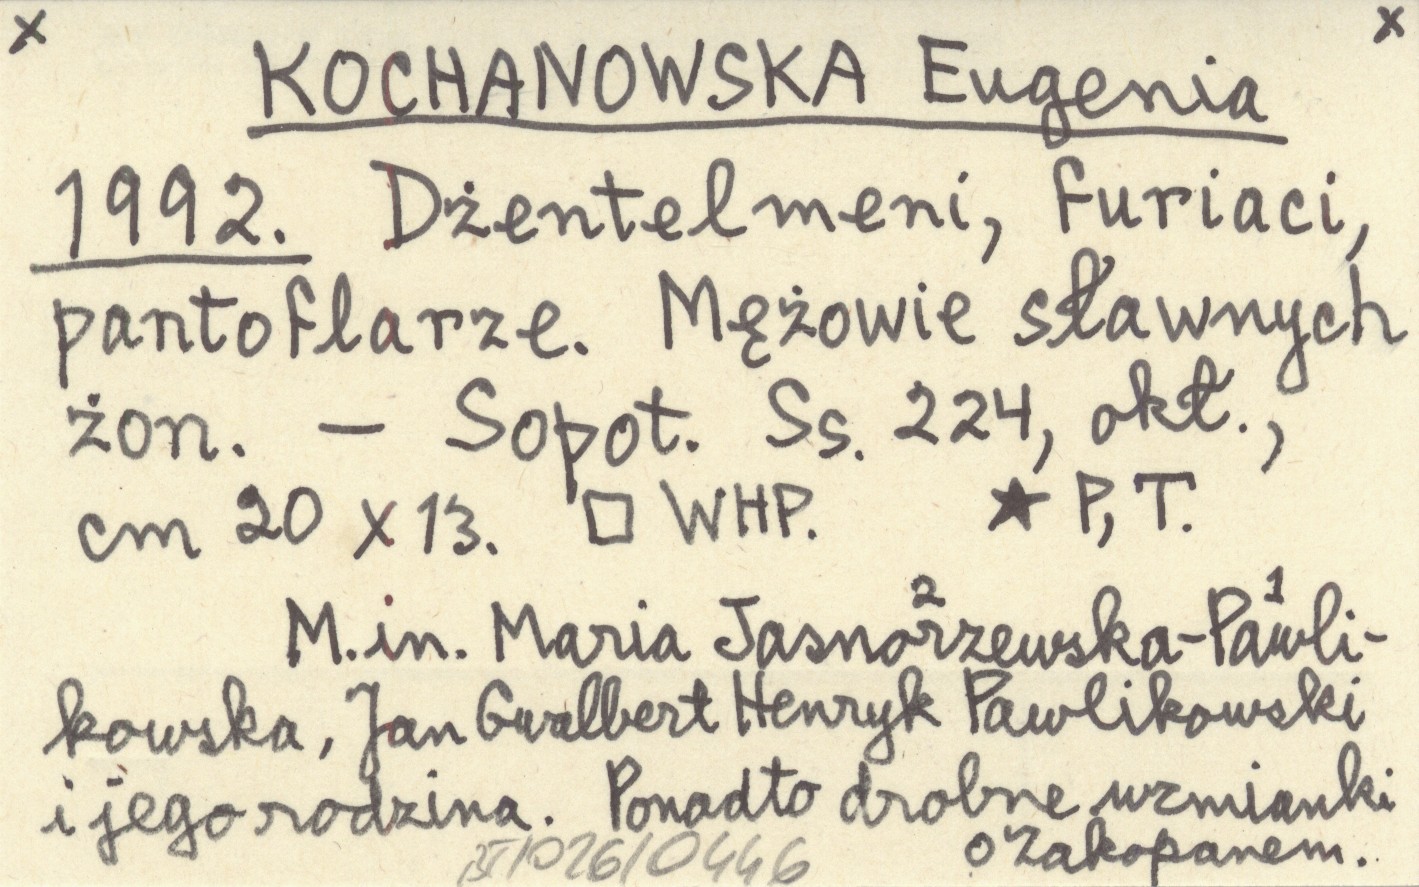 x x
KOCHANOWSKA Eugenia
1992. Dżentelmeni, furiaci,
pantoflarze. Mężowie sławnych
żon. — Sopot. Ss. 224, okł.,
cm 20 x 13. □ WHP. ★ P, T.
2 1
M.in. Maria Jasnorzewska-Pawli-
kowska, Jan Gwalbert Henryk Pawlikowski
i jego rodzina. Ponadto drobne wzmianki
o Zakopanem.
/026/0446